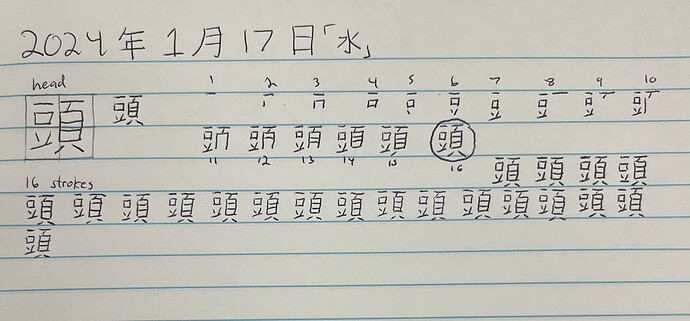 2024年1月17日「水」
head 1 2 3 4 5 6 7 8 9 10
頭 頭
頭
11 12 13 14 15 16
頭 頭 頭 頭
16 strokes
頭 頭 頭 頭 頭 頭 頭 頭 頭 頭 頭 頭 頭 頭 頭
頭